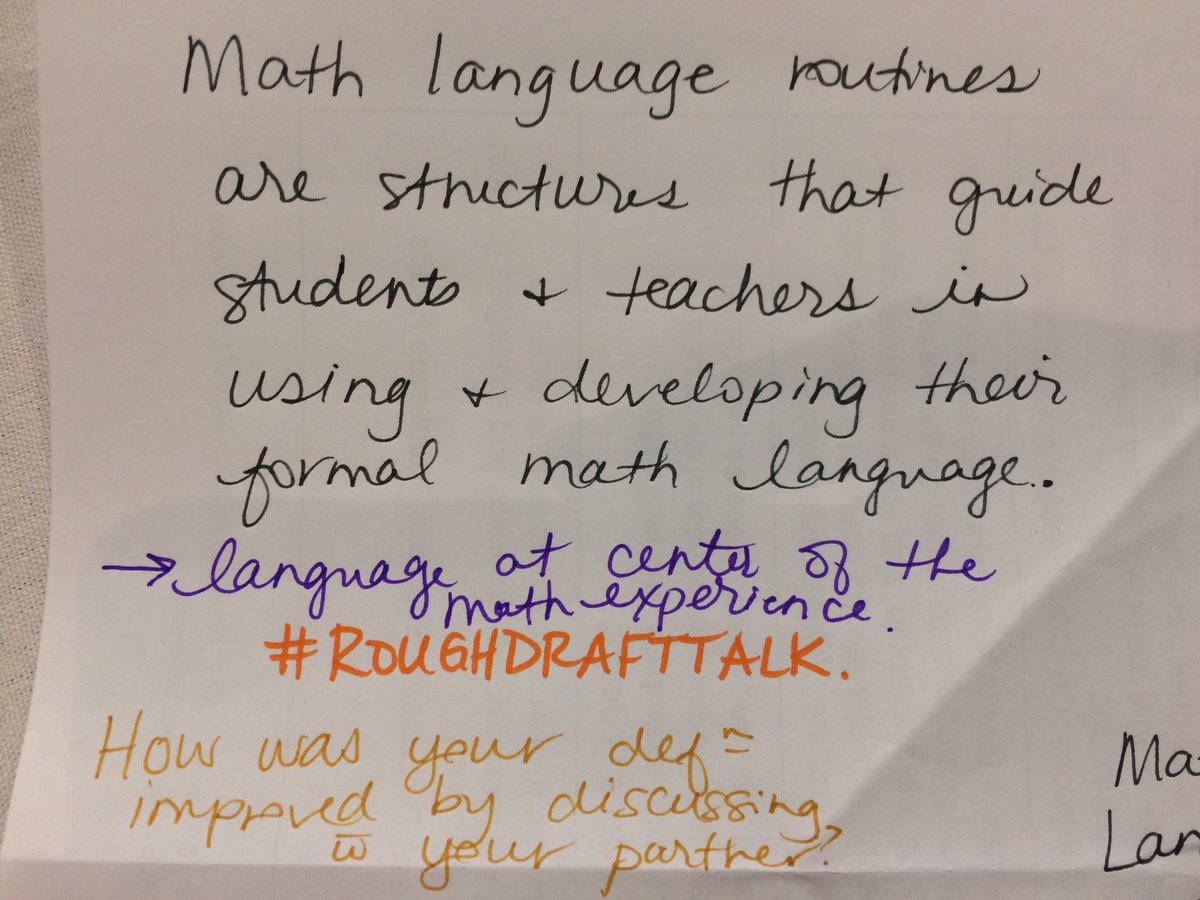 Math language routines
are structures that guide
students & teachers in
using & developing their
formal math language..
→ language at center of the
math experience.
#ROUGHDRAFTTALK.
How was your defn
improved by discussing
w̄ your partner?
Ma
Lan